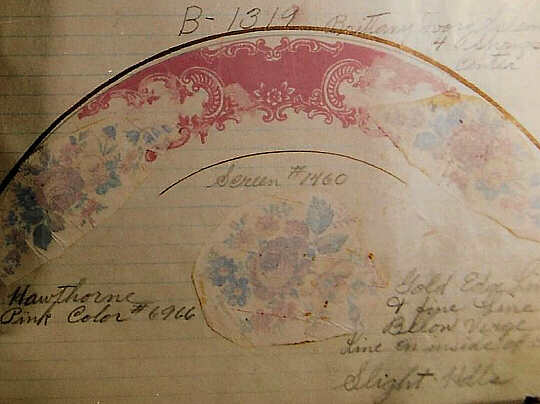 B-1319
Brittany
4
Screen #1460
Hawthorne
Pink Color #6966
Gold Edge
& fine line
Below Verge
Line on inside of
Slight